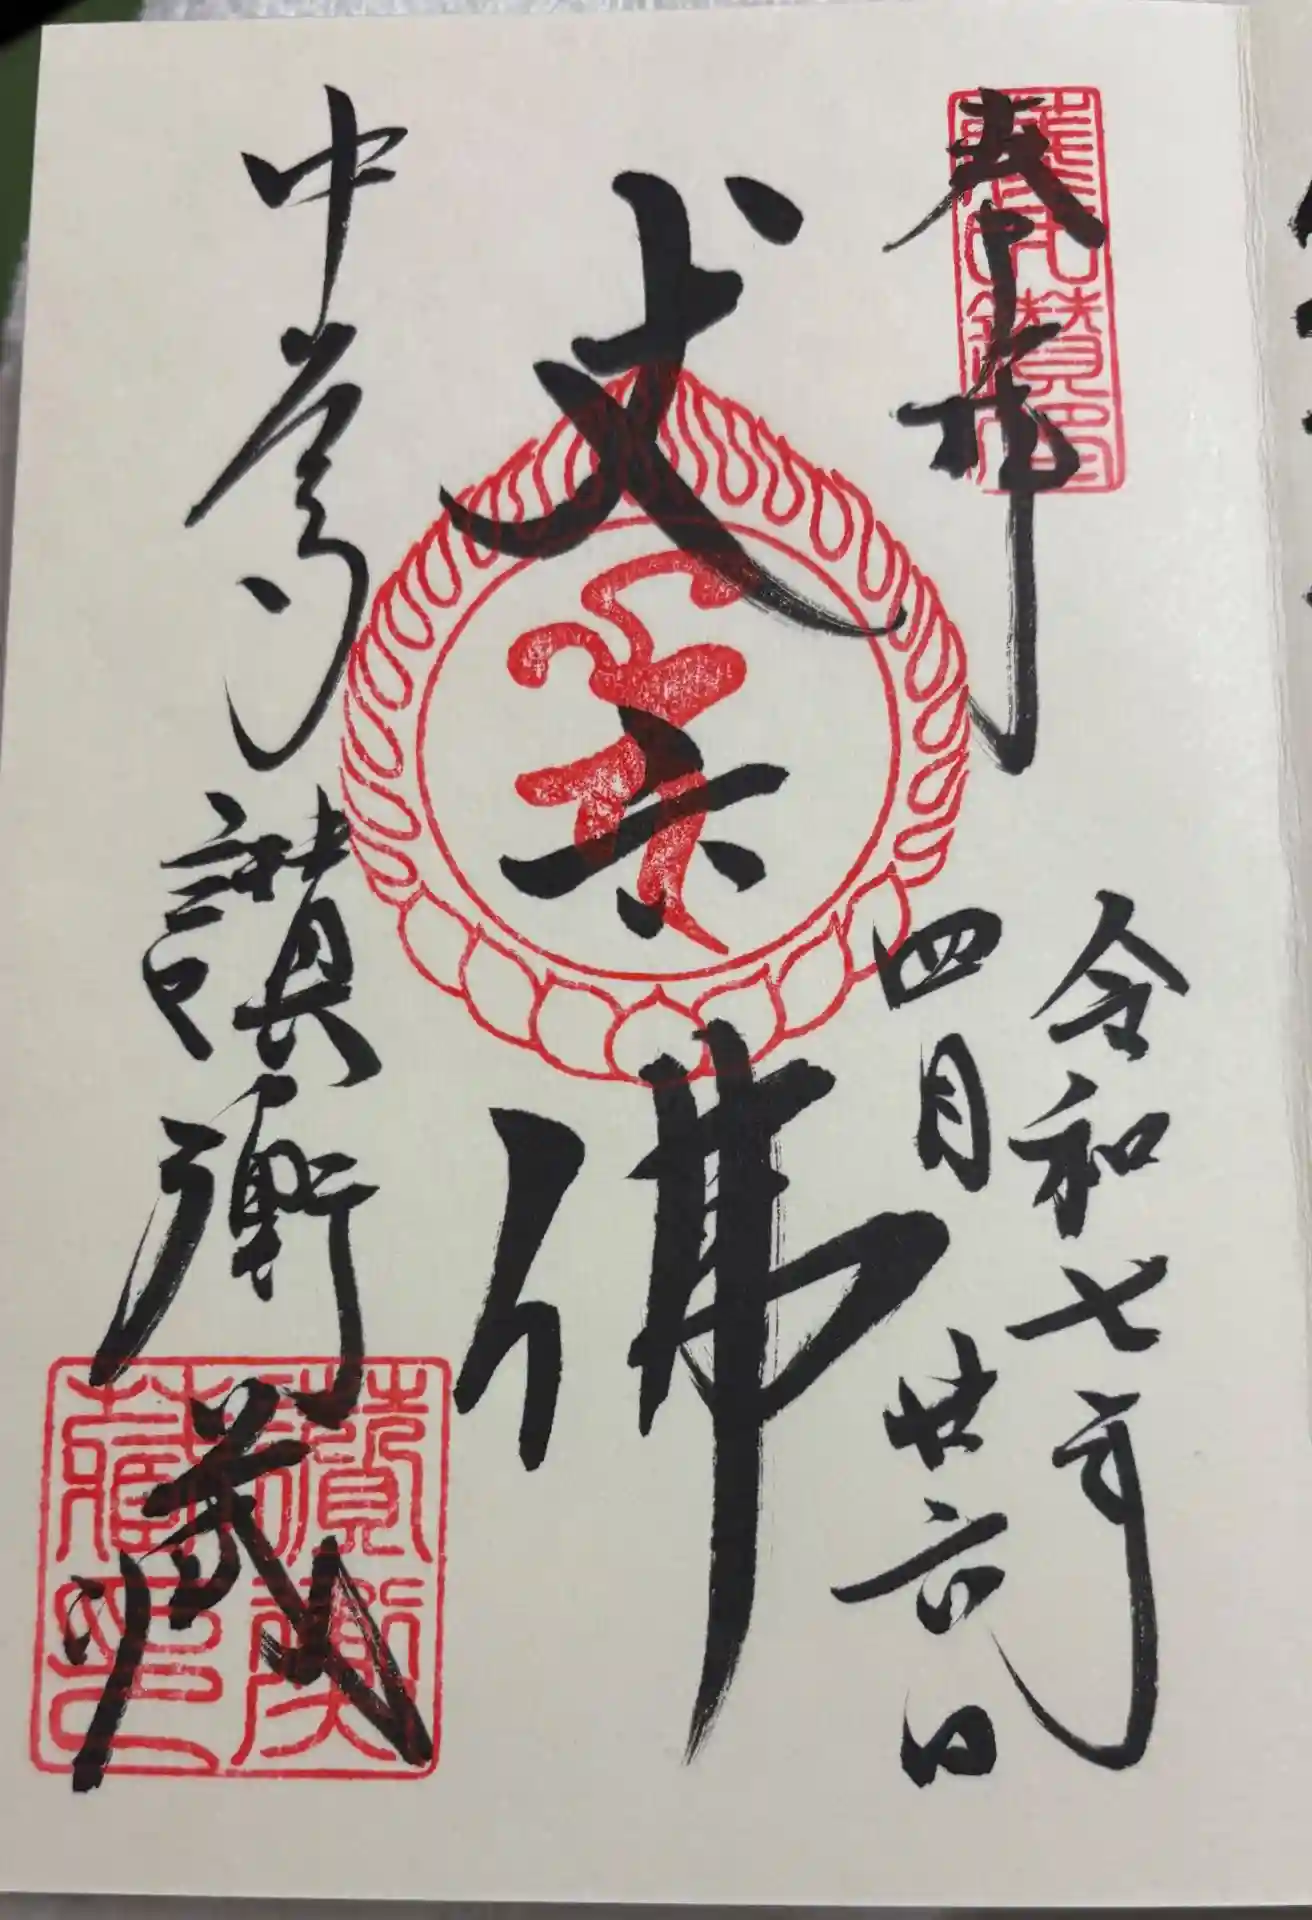 奉拝
令和七年
四月廿六日
丈六佛
中尊寺 讃衡蔵
讃衡
藏印